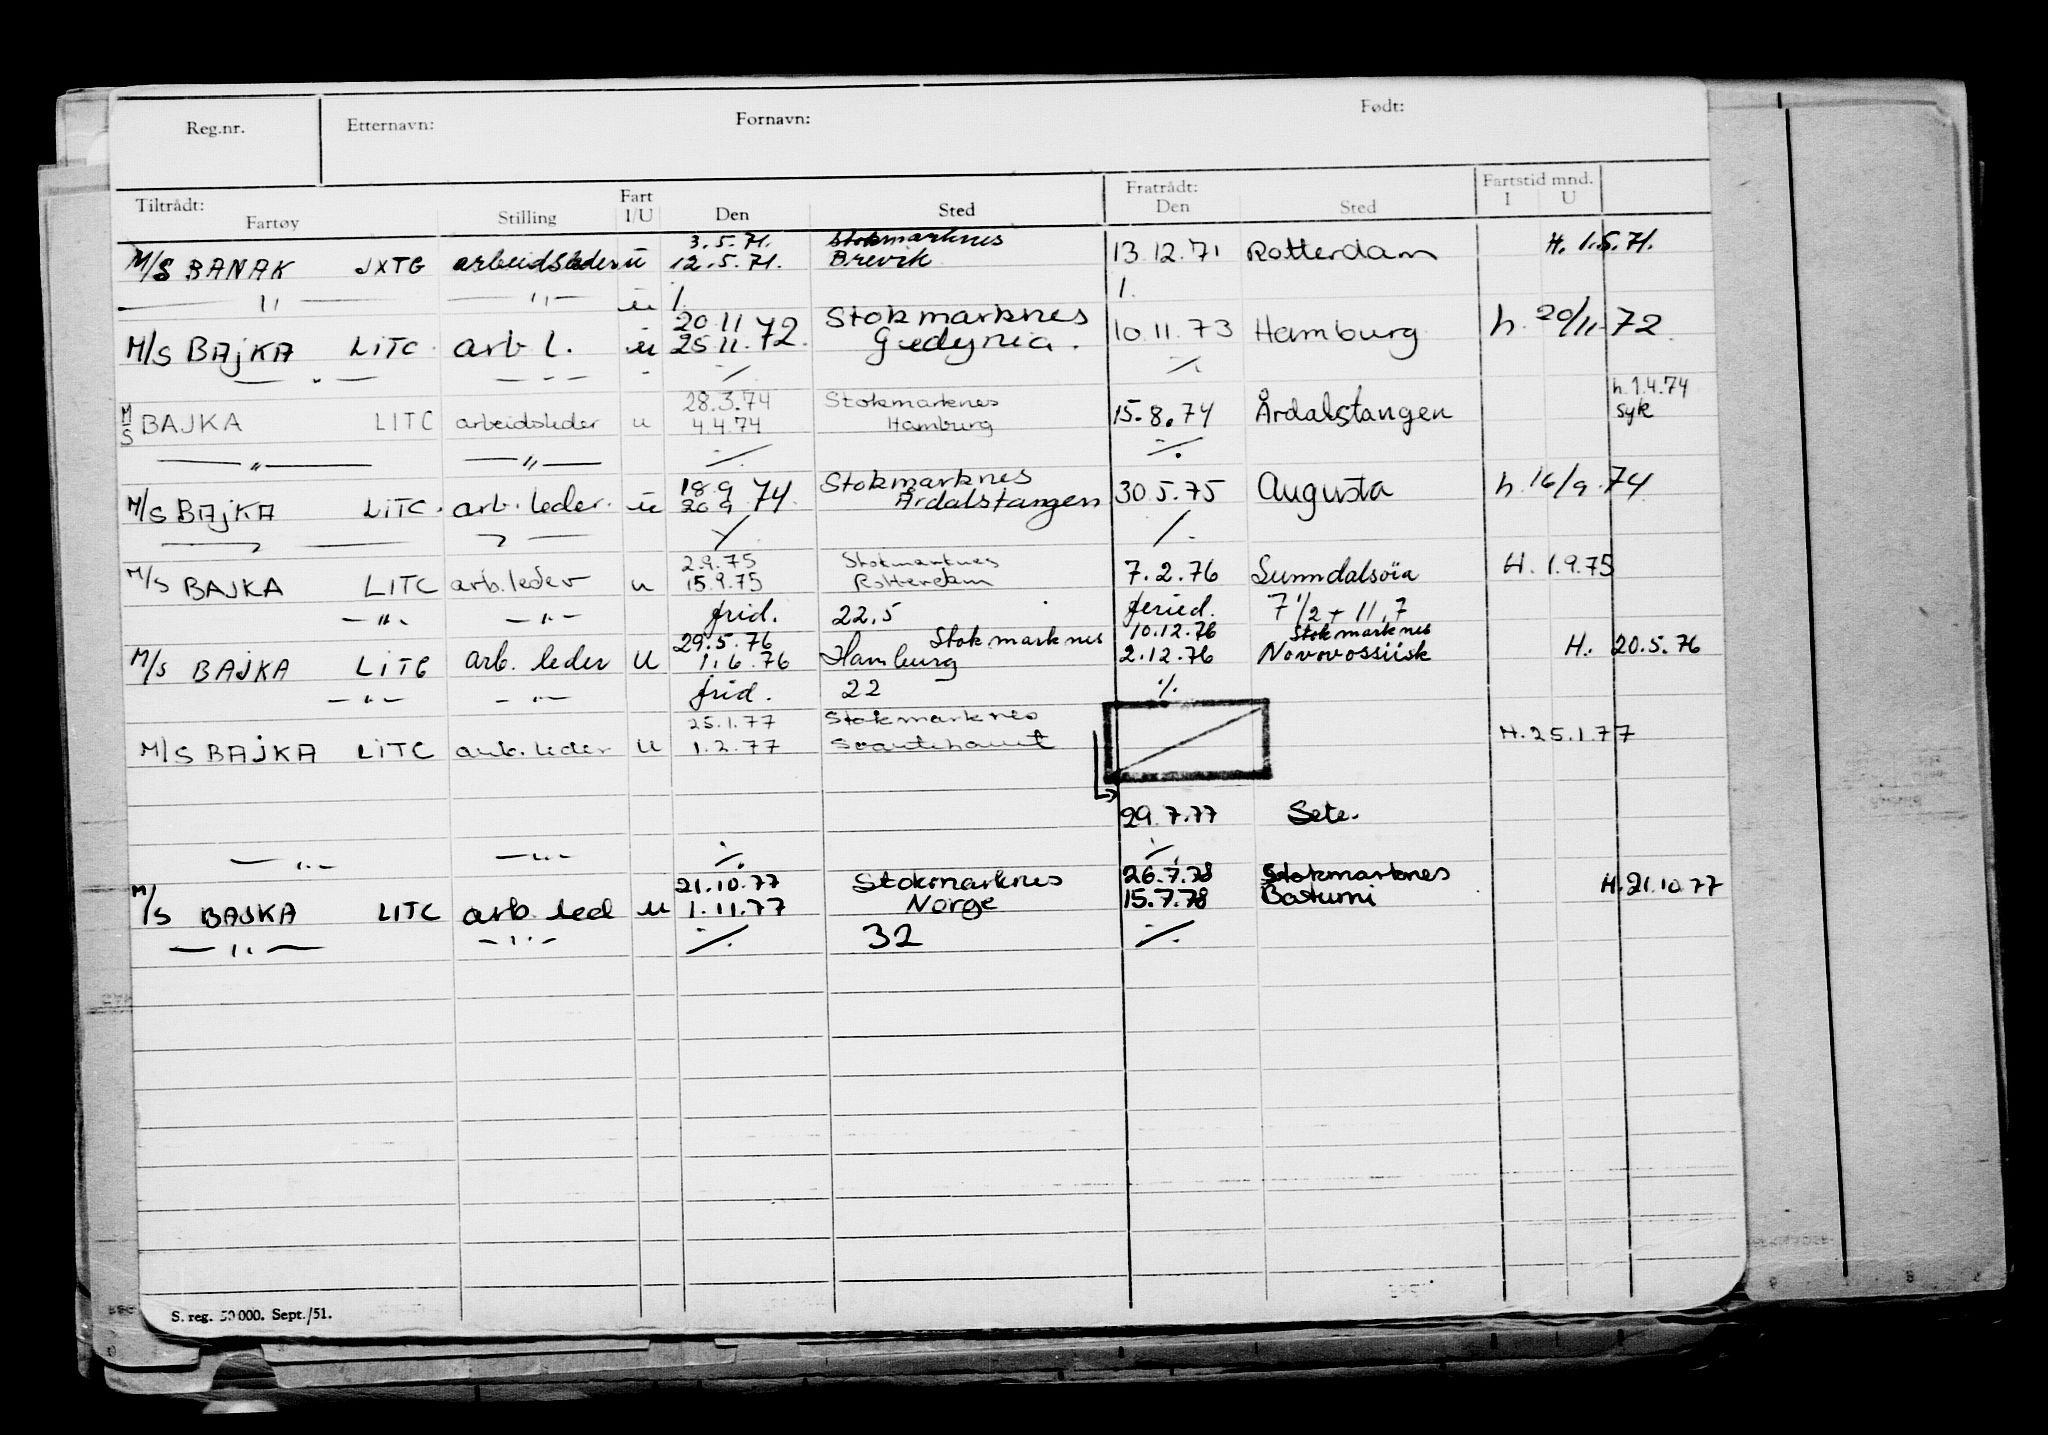 Reg.nr. Etternavn: Fornavn: Født:
Tiltrådt: Fart Fratrådt: Fartstid mnd.
Fartøy Stilling I/U Den Sted Den Sted I U
3.5.71. Stokmarknes
M/S BANAK JXTG arbeidsleder u 12.5.71. Brevik 13.12.71 Rotterdam H. 1.5.71.
— " — — " — u /. /.
20.11 72. Stokmarknes
M/S BAJKA LITC. arb l. u 25.11. Gedynia. 10.11.73 Hamburg h. 20/11-72
— " — — " — " ./. ./.
28.3.74 Stokmarknes h.1.4.74
M/S BAJKA LITC arbeidsleder u 4.4.74 Hamburg 15.8.74 Årdalstangen syk
— " — — " — ./. ./.
18.9 74. Stokmarknes
M/S BAJKA LITC. arb. leder. u 20.9 Årdalstangen 30.5.75 Augusta h. 16/9.74
— " — — " — ./. /.
2.9.75 Stokmarknes
M/S BAJKA LITC arb.leder u 15.9.75 Rotterdam 7.2.76 Sunndalsøia H. 1.9.75
— " — — " — frid. 22,5 feried. 7 1/2 + 11,7
29.5.76 Stokmarknes 10.12.76 Stokmarknes
M/S BAJKA LITC arb. leder U 1.6.76 Hamburg 2.12.76 Novovossiisk H. 20.5.76
— " — — " — frid. 22 ./.
25.1.77 Stokmarknes
M/S BAJKA LITC arb. leder U 1.2.77 H.25.1.77
29.7.77 Sete.
— " — — " — ./. ./.
21.10.77 Stokmarknes 26.7.78 Stokmarknes
M/S BAJKA LITC arb. led u 1.11.77 Norge 15.7.78 Batumi H.21.10.77
— " — — " — ./. 32 ./.
S. reg. 50 000. Sept./51.